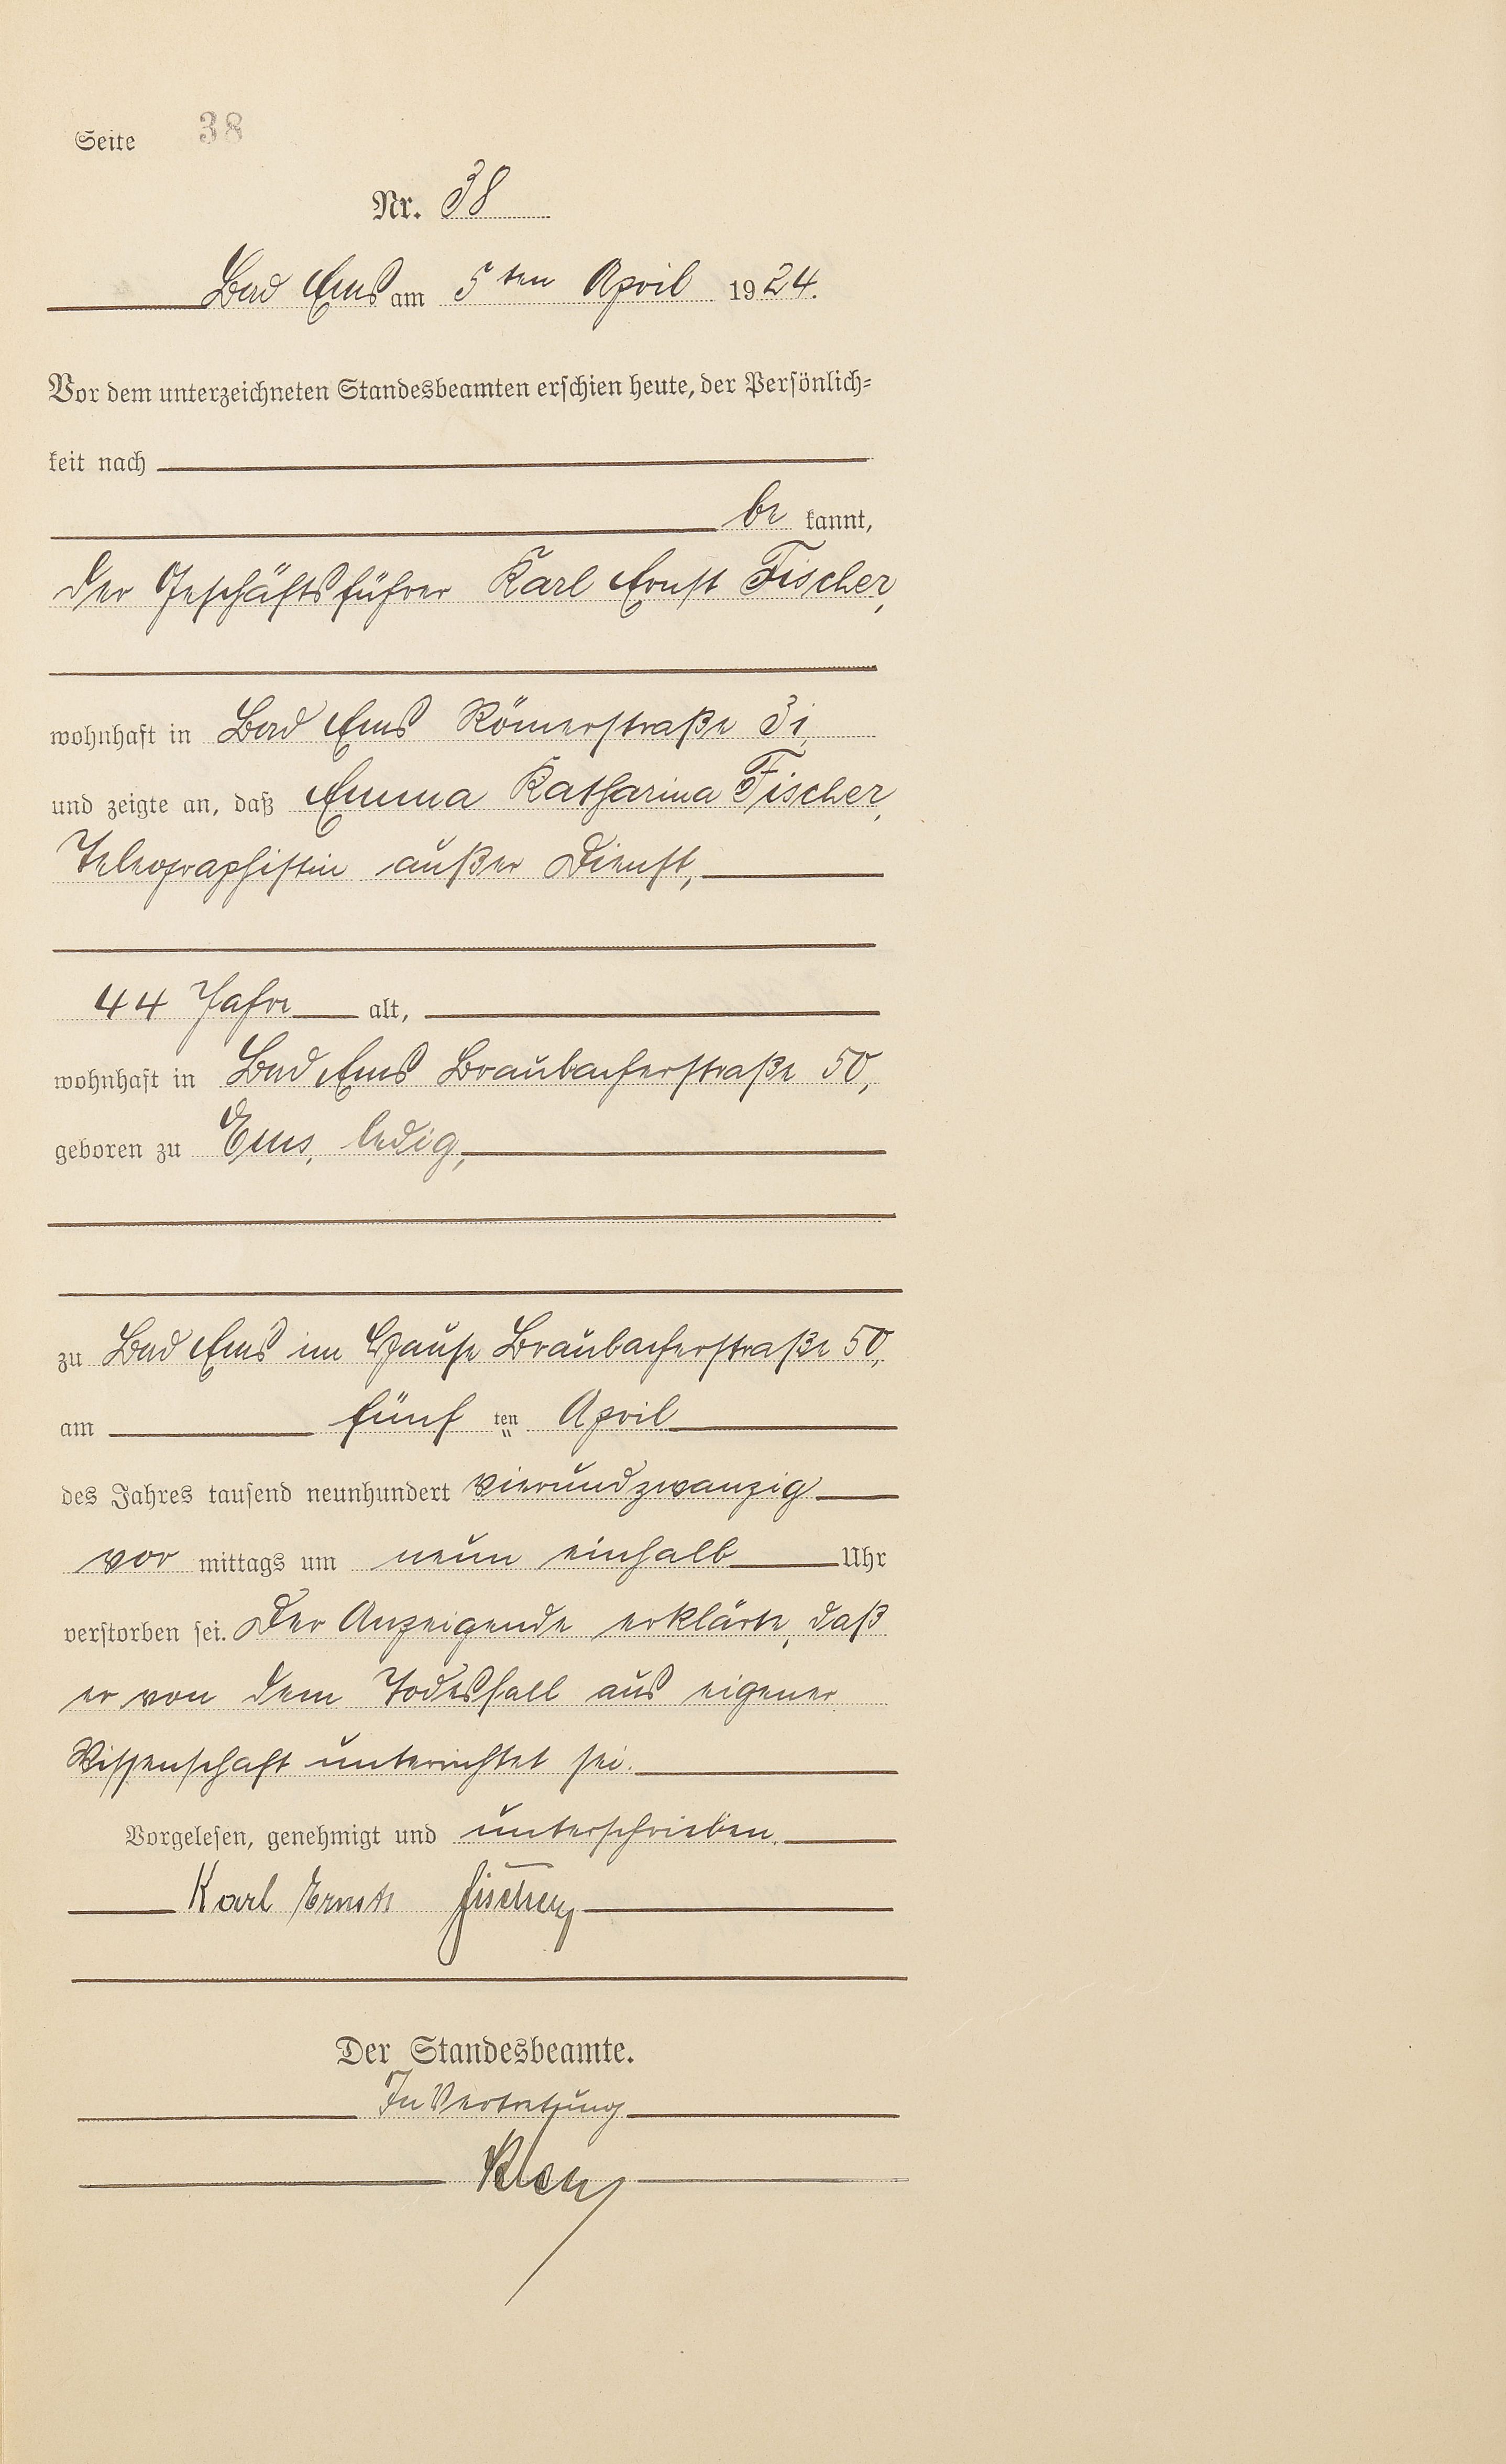 Seite 38
Nr. 38
Bad Ems am 5ten April 1924.
Vor dem unterzeichneten Standesbeamten erschien heute, der Persönlich-
keit nach
be kannt,
der Geschäftsführer Karl Ernst Fischer,
wohnhaft in Bad Ems Römerstraße 31,
und zeigte an, daß Emma Katharina Fischer,
Telegraphistin außer Dienst,
44 Jahre alt,
wohnhaft in Bad Ems Braubacherstraße 50,
geboren zu Ems, ledig,
zu Bad Ems im Hause Braubacherstraße 50,
am fünf ten April
des Jahres tausend neunhundert vierundzwanzig
vor mittags um neun einhalb Uhr
verstorben sei. Der Anzeigende erklärte, daß
er von dem Todesfall aus eigener
Wissenschaft unterrichtet sei.
Vorgelesen, genehmigt und unterschrieben.
Karl Ernst Fischer
Der Standesbeamte.
In Vertretung